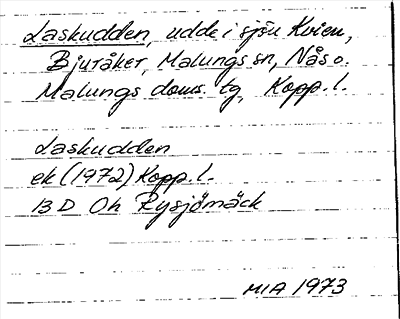 Laskudden, udde i sjön Kvien,
Bjuråker, Malungs sn, Nås o.
Malungs doms. tg, Kopp. l.
Laskudden
ek (1972) Kopp. l.
13 D Oh Rysjömäck
MIA 1973